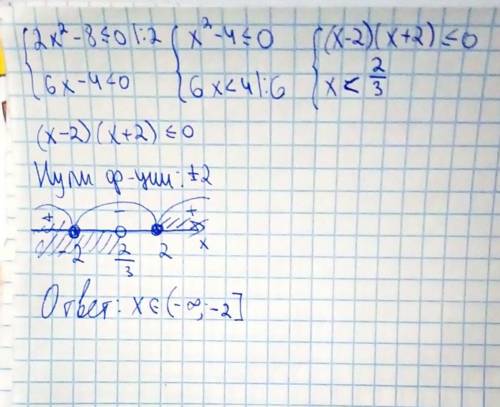 {2x²-8≤0 |:2 {x²-4≤0 {(x-2)(x+2)≤0
6x-4<0 6x<4 |:6 x<2/3
(x-2)(x+2)≤0
Нули ф-ции: ±2
+ - +
-2 2/3 2 x
Ответ: x∈(-∞;-2]